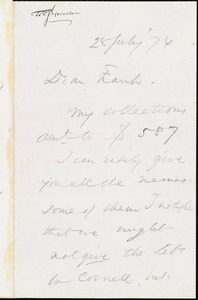 28 July '76
Dear Frank.
My collections
amt. to $587
I can easily give
you all the names.
Some of them I notified
that we might
not give the
to Cornell, but